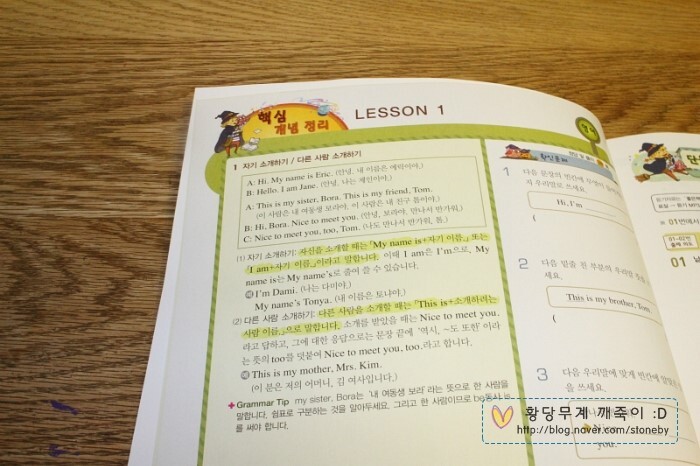 핵심
개념 정리
LESSON 1
1 자기 소개하기 / 다른 사람 소개하기
A: Hi. My name is Eric. (안녕, 내 이름은 에릭이야.)
B: Hello. I am Jane. (안녕, 나는 제인이야.)
A: This is my sister, Bora. This is my friend, Tom.
(이 사람은 내 여동생 보라야. 이 사람은 내 친구 톰이야.)
B: Hi, Bora. Nice to meet you. (안녕, 보라야. 만나서 반가워.)
C: Nice to meet you, too, Tom. (나도 만나서 반가워, 톰.)
(1) 자기 소개하기: 자신을 소개할 때는 「My name is+자기 이름.」 또는
「I am+자기 이름.」이라고 말합니다. 이때 I am은 I'm으로, My
name is는 My name's로 줄여 쓸 수 있습니다.
예 I'm Dami. (나는 다미야.)
My name's Tonya. (내 이름은 토냐야.)
(2) 다른 사람 소개하기: 다른 사람을 소개할 때는 「This is+소개하려는
사람 이름.」으로 말합니다. 소개를 받았을 때는 Nice to meet you.
라고 답하고, 그에 대한 응답으로는 문장 끝에 '역시, ~도 또한' 이라
는 뜻의 too를 덧붙여 Nice to meet you, too.라고 합니다.
예 This is my mother, Mrs. Kim.
(이 분은 저의 어머니, 김 여사입니다.)
Grammar Tip my sister, Bora는 '내 여동생 보라'라는 뜻으로 한 사람을
말합니다. 쉼표로 구분하는 것을 알아두세요. 그리고 한 사람이므로 be동사 is
를 써야 합니다.
확인문제
1 다음 문장의 빈칸에
자 우리말로 쓰세요.
Hi, I'm
(
2 다음 밑줄 친 부분의 우리말 뜻
세요.
This is my brother, Tom.
(
3 다음 우리말에 맞게 빈칸에 알맞
을 쓰세요.
Nice
you.
01번에서
01~02번
01
황당무계 깨죽이 :D
http://blog.naver.com/stoneby